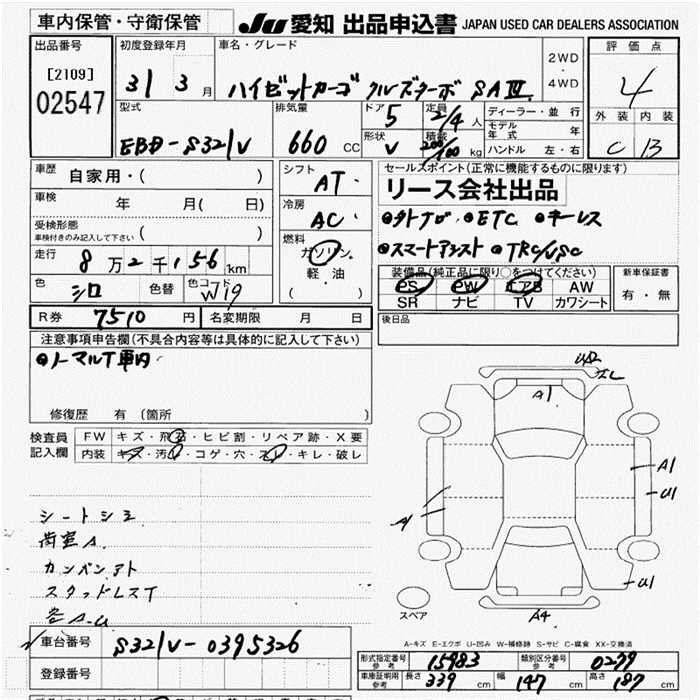 車内保管・守衛保管 JU 愛知 出品申込書 JAPAN USED CAR DEALERS ASSOCIATION
出品番号 初度登録年月 車名・グレード 2WD 評価点
[2109] 31 3月 ハイゼットカーゴ クルーズターボ SAⅢ ・ 4
02547 4WD
型式 排気量 ドア 5 定員 2/4人 ディーラー・並行 外装 内装
EBD-S321V 660 CC 形状 V 積載 200/100 kg モデル年式 年 C B
ハンドル 左・右
車歴 自家用・( ) シフト AT セールスポイント(正常に機能するものに限ります)
車検 年 月( 日) 冷房 AC リース会社出品
受検形態 ( ) ●外ナビ ●ETC ●キーレス
車検付きのみ記入して下さい 燃料 ガソリン ●スマートアシスト ●TRC/VSC
走行 8万2千156km 軽・油 装備品(純正品に限り○をつけてください) 新車保証書
色 シロ 色替 色コード W19 ( ) PS PW エアB AW 有・無
SR ナビ TV カワシート
R券 7510円 名変期限 月 日 後日品
注意事項申告欄(不具合内容等は具体的に記入して下さい)
●ノーマルT車内
修復歴 有 (箇所 )
検査員 FW キズ・飛石・ヒビ割・リペア跡・X要
記入欄 内装 キズ・汚レ・コゲ・穴・スレ・キレ・破レ
A1
A1
U1
シートシミ
荷室A
カンバンアト
スタッドレスT
各A.U
U1
スペア
A4
A-キズ E-エクボ U-凹み W-補修跡 S-サビ C-腐食 XX-交換済
車台番号 S321V-0395326
型式指定番号 参考 15983 類別区分番号 参考 0279
登録番号 車庫証明用 参考 長さ 339 cm 幅 147 cm 高さ 187 cm